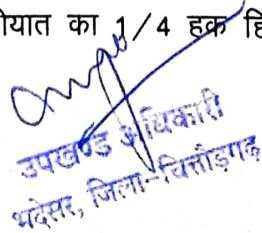 का 1/4 हक
उपखण्ड अधिकारी
भदेसर, जिला-चित्तौड़गढ़